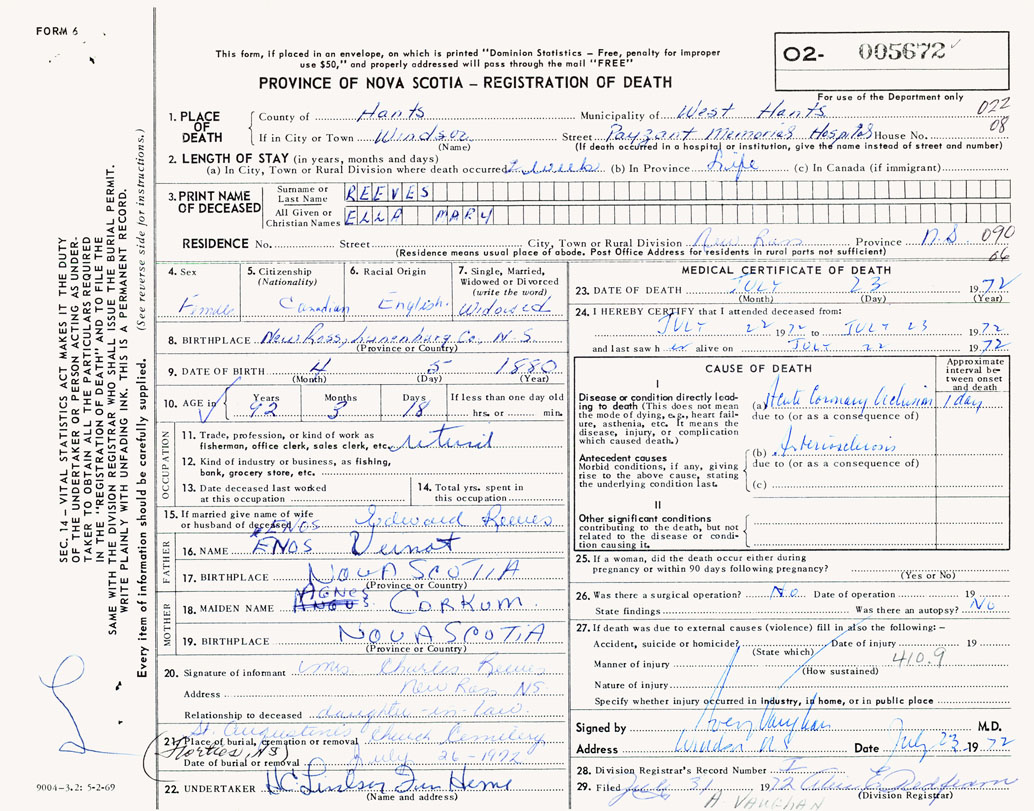 FORM 6
This form, if placed in an envelope, on which is printed "Dominion Statistics – Free, penalty for improper
use $50," and properly addressed will pass through the mail "FREE"
PROVINCE OF NOVA SCOTIA – REGISTRATION OF DEATH
02- 005672
For use of the Department only
022
08
1. PLACE OF DEATH
County of Hants Municipality of West Hants
If in City or Town Windsor Street Payzant Memorial Hospital House No.
(Name) (If death occurred in a hospital or institution, give the name instead of street and number)
2. LENGTH OF STAY (in years, months and days)
(a) In City, Town or Rural Division where death occurred 1 week (b) In Province Life (c) In Canada (if immigrant)
3. PRINT NAME OF DECEASED
Surname or Last Name REEVES
All Given or Christian Names ELLA MARY
RESIDENCE No. Street City, Town or Rural Division New Ross Province N S 090
66
(Residence means usual place of abode. Post Office Address for residents in rural parts not sufficient)
4. Sex
Female
5. Citizenship
(Nationality)
Canadian
6. Racial Origin
English
7. Single, Married,
Widowed or Divorced
(write the word)
Widowed
8. BIRTHPLACE New Ross, Lunenburg Co, N. S.
(Province or Country)
9. DATE OF BIRTH 4 5 1880
(Month) (Day) (Year)
10. AGE in
Years Months Days If less than one day old
92 3 18 hrs. or min.
OCCUPATION
11. Trade, profession, or kind of work as
fisherman, office clerk, sales clerk, etc. retired
12. Kind of industry or business, as fishing,
bank, grocery store, etc.
13. Date deceased last worked
at this occupation
14. Total yrs. spent in
this occupation
15. If married give name of wife
or husband of deceased Edward Reeves
FATHER
ENOS
16. NAME ENOS Veinot
17. BIRTHPLACE NOVA SCOTIA
(Province or Country)
MOTHER
AGNES
18. MAIDEN NAME CORKUM
19. BIRTHPLACE NOVA SCOTIA
(Province or Country)
20. Signature of informant Mrs Charles Reeves
Address New Ross NS
Relationship to deceased daughter-in-law
St. Augustine's Church Cemetery
21. Place of burial, cremation or removal
Date of burial or removal July 26 - 1972
22. UNDERTAKER HC Lindsay Fun Home
(Name and address)
MEDICAL CERTIFICATE OF DEATH
23. DATE OF DEATH JULY 23 1972
(Month) (Day) (Year)
24. I HEREBY CERTIFY that I attended deceased from:
JULY 22 1972 to JULY 23 1972
and last saw h er alive on JULY 22 1972
CAUSE OF DEATH
Approximate
interval be-
tween onset
and death
I
Disease or condition directly lead-
ing to death (This does not
mean the mode of dying, e.g., heart fail-
ure, asthenia, etc. It means the
disease, injury, or complication
which caused death.)
(a) Acute Coronary Occlusion 1 day
due to (or as a consequence of)
Antecedent causes
Morbid conditions, if any, giving
rise to the above cause, stating
the underlying condition last.
(b) Arteriosclerosis
due to (or as a consequence of)
(c)
II
Other significant conditions
contributing to the death, but not
related to the disease or condi-
tion causing it.
25. If a woman, did the death occur either during
pregnancy or within 90 days following pregnancy?
(Yes or No)
26. Was there a surgical operation? No Date of operation 19
State findings Was there an autopsy? No
27. If death was due to external causes (violence) fill in also the following: –
Accident, suicide or homicide? Date of injury 19
(State which)
Manner of injury 410.9
(How sustained)
Nature of injury
Specify whether injury occurred in industry, in home, or in public place
Signed by Vaughan M.D.
Address Windsor N S Date July 23 1972
28. Division Registrar's Record Number
29. Filed July 31 1972
(Division Registrar)
A. VAUGHAN
SEC. 14 – VITAL STATISTICS ACT MAKES IT THE DUTY
OF THE UNDERTAKER OR PERSON ACTING AS UNDER-
TAKER TO OBTAIN ALL THE PARTICULARS REQUIRED
IN THE "REGISTRATION OF DEATH" AND TO FILE THE
SAME WITH THE DIVISION REGISTRAR WHO SHALL ISSUE THE BURIAL PERMIT.
WRITE PLAINLY WITH UNFADING INK. THIS IS A PERMANENT RECORD.
Every item of information should be carefully supplied. (See reverse side for instructions.)
9004-3.2: 5-2-69